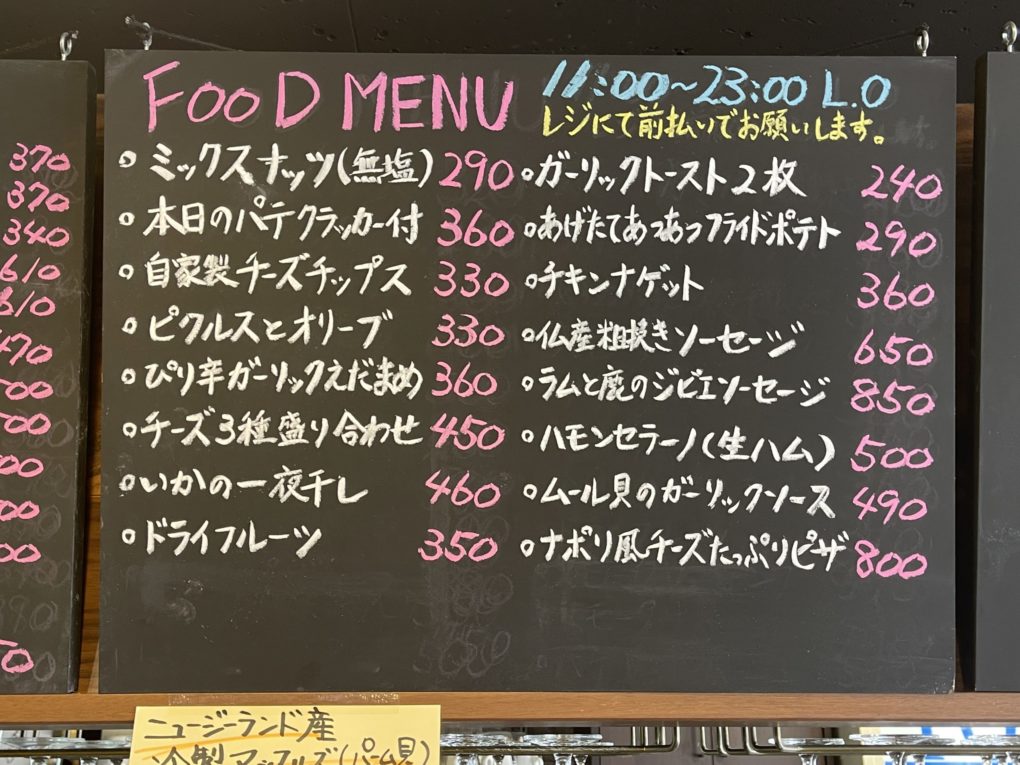 FooD MENU
11:00~23:00 L.O
レジにて前払いでお願いします。
・ミックスナッツ(無塩) 290
・本日のパテクラッカー付 360
・自家製チーズチップス 330
・ピクルスとオリーブ 330
・ぴり辛ガーリックえだまめ 360
・チーズ3種盛り合わせ 450
・いかの一夜干し 460
・ドライフルーツ 350
・ガーリックトースト2枚 240
・あげたてあつあつフライドポテト 290
・チキンナゲット 360
・仏産粗挽きソーセージ 650
・ラムと鹿のジビエソーセージ 850
・ハモンセラーノ(生ハム) 500
・ムール貝のガーリックソース 490
・ナポリ風チーズたっぷりピザ 800
370
370
340
610
610
470
ニュージーランド産